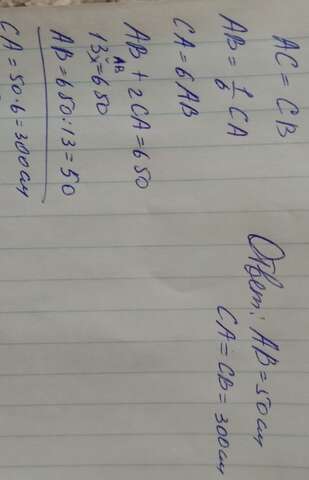 AC = CB
AB = 1/6 CA
CA = 6AB
AB + 2CA = 650
13x = 650
AB
AB = 650 : 13 = 50
CA = 50·6 = 300см
Ответ: AB = 50см
CA = CB = 300см